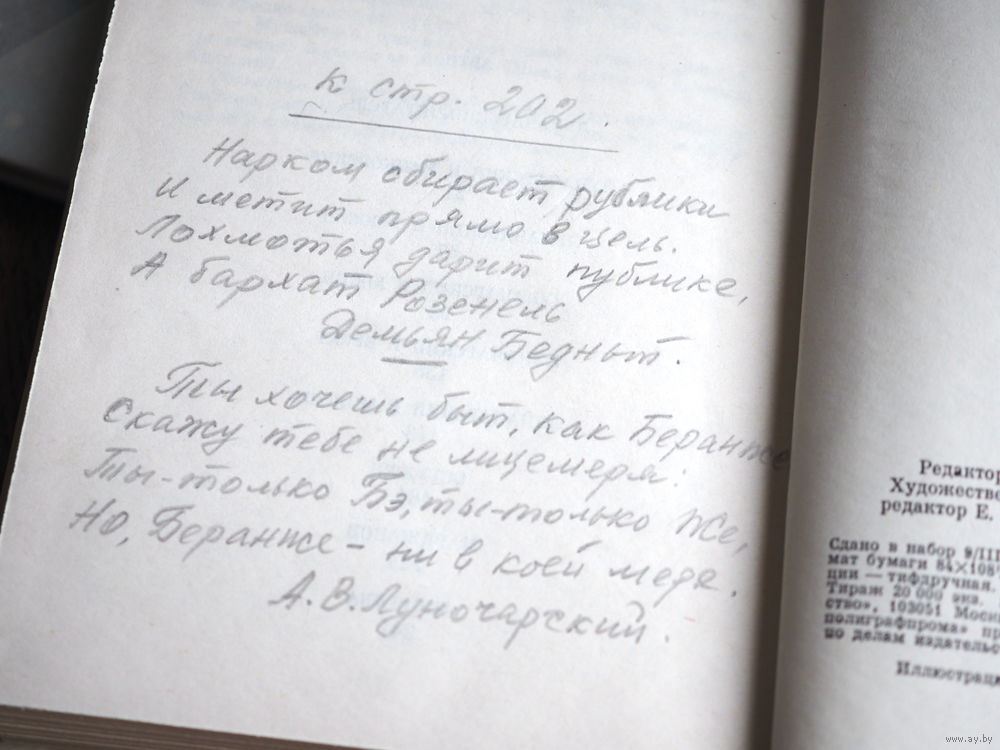 К стр. 202.
Нарком сбирает рублики
И метит прямо в цель.
Лохмотья дарит публике,
А бархат Розенель
Демьян Бедный.
Ты хочешь быт, как Беранже
Скажу тебе не лицемеря:
Ты-только Бэ, ты-только Же,
Но, Беранже - ни в коей мере.
А.В.Луночарский.
Редактор
Художестве
редактор Е.
Сдано в набор 9/III
мат бумаги 84×108
ции — тифдручная.
Тираж 20 000 экз.
ство», 103051 Моск
полиграфпрома» пр
по делам издательс
Иллюстраци
www.ay.by